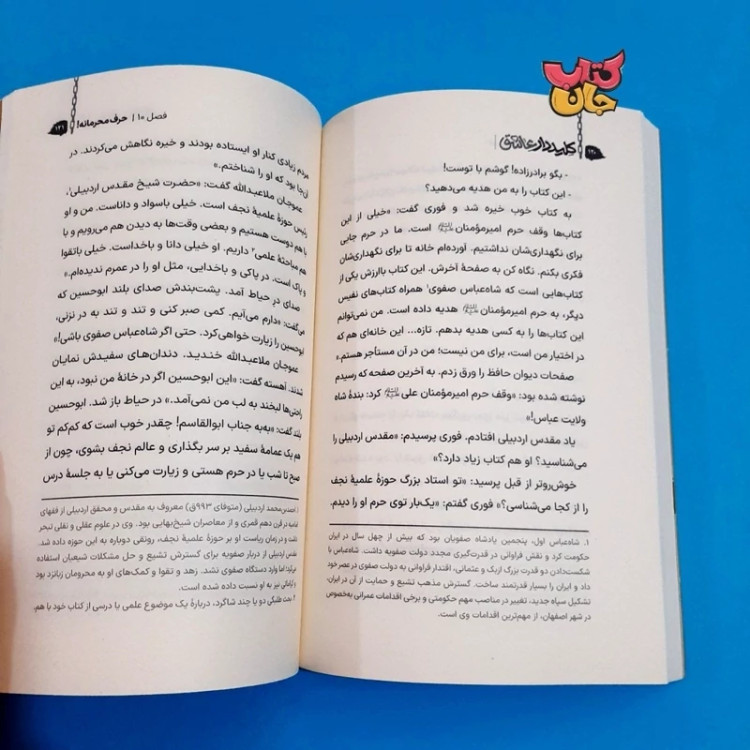 کتاب
جان
۱۲۰
کلیددار عاشق
- بگو برادرزاده! گوشم با توست!
- این کتاب را به من هدیه می‌دهید؟
به کتاب خوب خیره شد و فوری گفت: «خیلی از این
کتاب‌ها وقف حرم امیرمؤمنان است. ما در حرم جایی
برای نگهداری‌شان نداشتیم. آورده‌ام خانه تا برای نگهداری‌شان
فکری بکنم. نگاه کن به صفحهٔ آخرش. این کتاب باارزش یکی از
کتاب‌هایی است که شاه‌عباس صفوی۱ همراه کتاب‌های نفیس
دیگر، به حرم امیرمؤمنان هدیه داده است. من نمی‌توانم
این کتاب‌ها را به کسی هدیه بدهم. تازه... این خانه‌ای هم که
در اختیار من است، برای من نیست؛ من در آن مستأجر هستم.»
صفحات دیوان حافظ را ورق زدم. به آخرین صفحه که رسیدم
نوشته شده بود: «وقف حرم امیرمؤمنان علی کرد: بندهٔ شاه
ولایت عباس!»
یاد مقدس اردبیلی افتادم. فوری پرسیدم: «مقدس اردبیلی را
می‌شناسید؟ او هم کتاب زیاد دارد؟»
خوش‌روتر از قبل پرسید: «تو استاد بزرگ حوزهٔ علمیهٔ نجف
را از کجا می‌شناسی؟» فوری گفتم: «یک‌بار توی حرم او را دیدم.
۱. شاه‌عباس اول، پنجمین پادشاه صفویان بود که بیش از چهل سال در ایران
حکومت کرد و نقش فراوانی در قدرت‌گیری مجدد دولت صفویه داشت. شاه‌عباس با
شکست‌دادن دو قدرت بزرگ ازبک و عثمانی، اقتدار فراوانی به دولت صفوی در عصر خود
داد و ایران را بسیار قدرتمند ساخت. گسترش مذهب تشیع و حمایت از آن در ایران،
تشکیل سپاه جدید، تغییر در مناصب مهم حکومتی و برخی اقدامات عمرانی به‌خصوص
در شهر اصفهان، از مهم‌ترین اقدامات وی است.
فصل ۱۰ | حرف محرمانه! ۱۲۱
مردم زیادی کنار او ایستاده بودند و خیره نگاهش می‌کردند. در
آن‌جا بود که او را شناختم.»
عموجان ملاعبدالله گفت: «حضرت شیخ مقدس اردبیلی۱،
رئیس حوزهٔ علمیهٔ نجف است. خیلی باسواد و داناست. من و او
با هم دوست هستیم و بعضی وقت‌ها به دیدن هم می‌رویم و با
هم مباحثهٔ علمی۲ داریم. او خیلی دانا و باخداست. خیلی باتقوا
و پاک است. در پاکی و باخدایی، مثل او را در عمرم ندیده‌ام.»
صدای در حیاط آمد. پشت‌بندش صدای بلند ابوحسین که
می‌گفت: «دارم می‌آیم. کمی صبر کنی و تند و تند به در نزنی،
ابوحسین را زیارت خواهی‌کرد. حتی اگر شاه‌عباس صفوی باشی!»
عموجان ملاعبدالله خندید. دندان‌های سفیدش نمایان
شدند. آهسته گفت: «این ابوحسین اگر در خانهٔ من نبود، به این
راحتی‌ها لبخند به لب من نمی‌آمد.» در حیاط باز شد. ابوحسین
بلند گفت: «به‌به جناب ابوالقاسم! چقدر خوب است که کم‌کم تو
هم یک عمامهٔ سفید بر سر بگذاری و عالم نجف بشوی، چون از
صبح تا شب یا در حرم هستی و زیارت می‌کنی یا به جلسهٔ درس
۱. احمدبن‌محمد اردبیلی (متوفای ۹۹۳ق) معروف به مقدس و محقق اردبیلی از فقهای
امامیه در قرن دهم قمری و از معاصران شیخ‌بهایی بود. وی در علوم عقلی و نقلی تبحر
داشت و در زمان ریاست او بر حوزهٔ علمیهٔ نجف، رونقی دوباره به این حوزه داده شد.
مقدس اردبیلی از دربار صفویه برای گسترش تشیع و حل مشکلات شیعیان استفاده
می‌کرد؛ اما وارد دستگاه صفوی نشد. زهد و تقوا و کمک‌های او به محرومان زبانزد بود
و کراماتی نیز به او نسبت داده شده است.
۲. بحث طلبگی دو یا چند شاگرد، دربارهٔ یک موضوع علمی یا درسی از کتاب خود با هم.